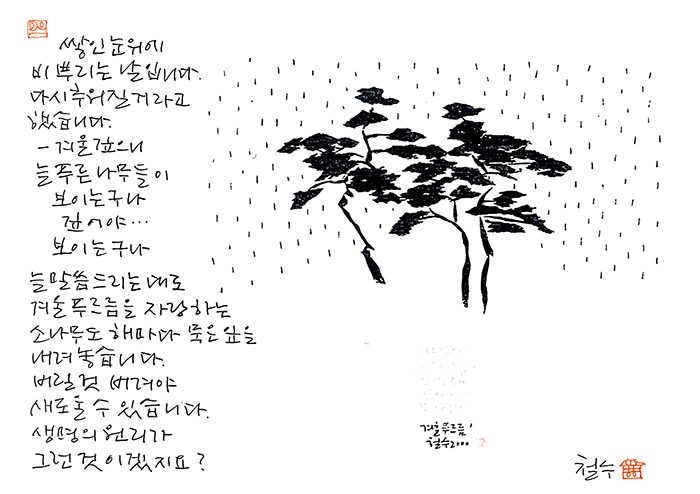 쌓인 눈위에
비 뿌리는 날입니다.
다시 추워질거라고
했습니다.
- 겨울 깊으니
늘 푸른 나무들이
보이는구나
깊어야…
보이는구나
늘 말씀드리는대로
겨울 푸르름을 자랑하는
소나무도 해마다 묵은 잎을
내려 놓습니다.
버릴 것 버려야
새로울 수 있습니다.
생명의 원리가
그런 것이겠지요?
겨울 푸르름'
철수 2000
철수